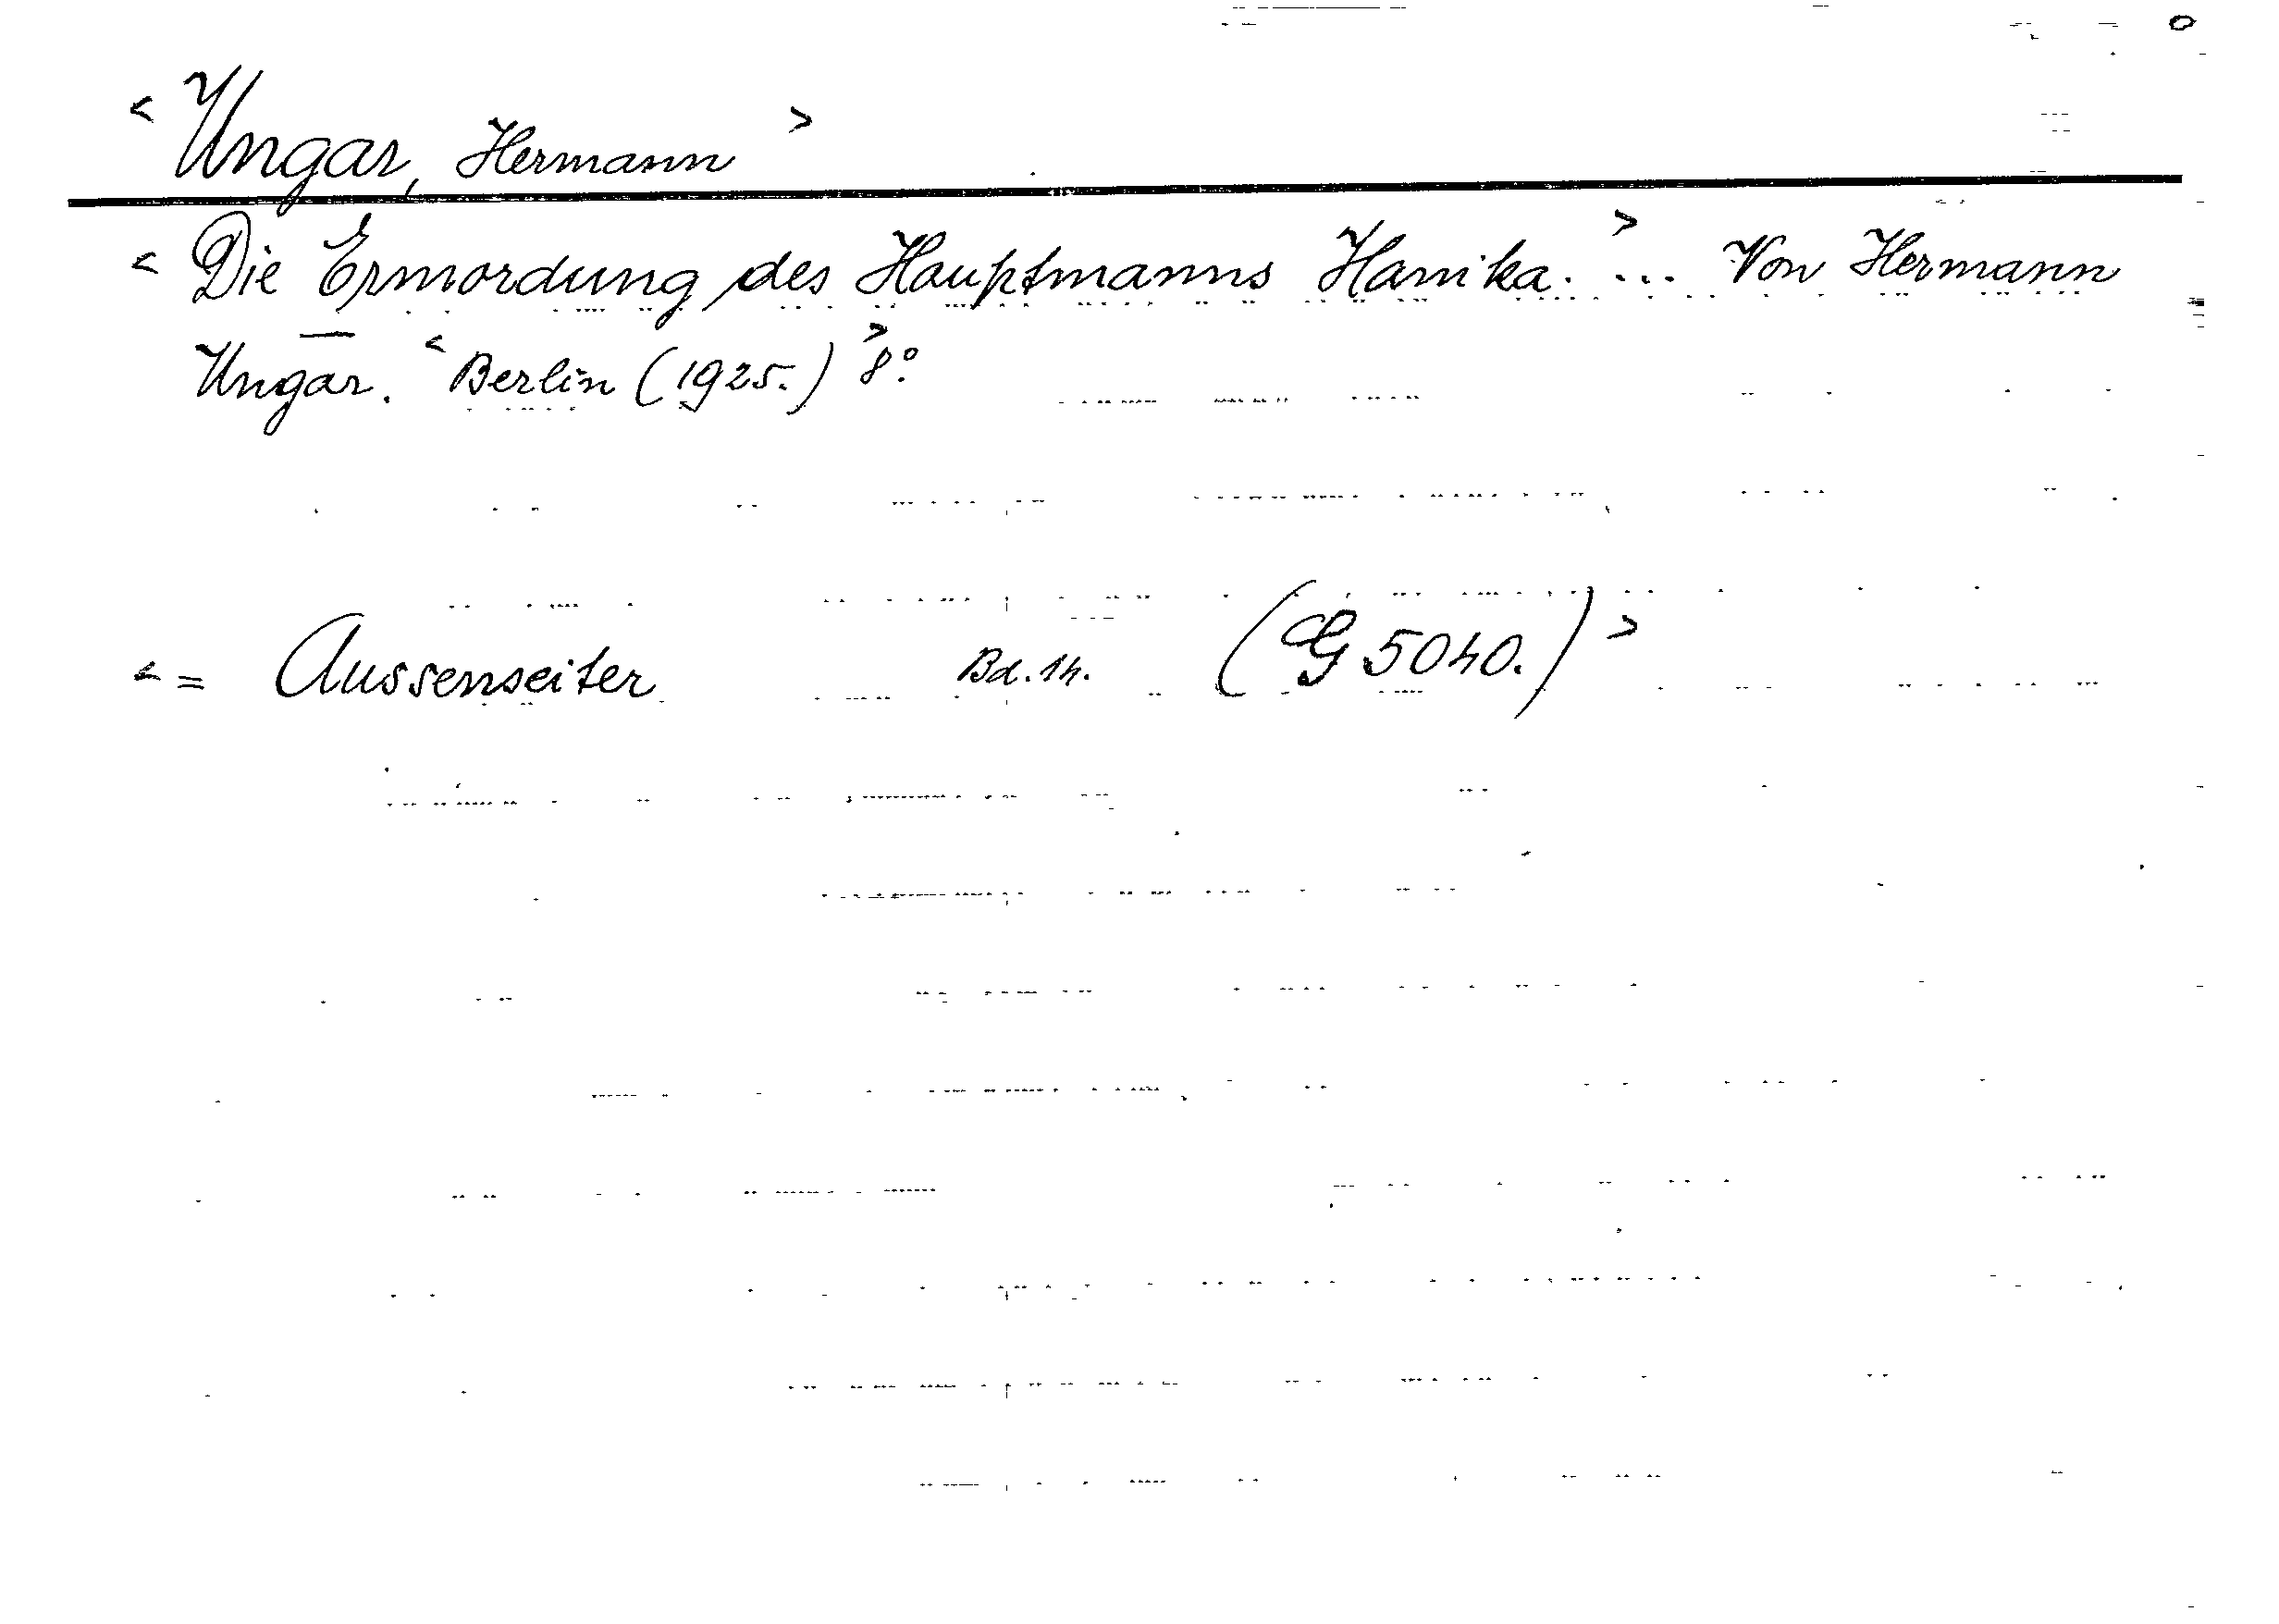 < Ungar, Hermann >
< Die Ermordung des Hauptmanns Hanika. > ... Von Hermann
Ungar. < Berlin (1925.) > 8°.
< = Aussenseiter Bd. 14. (G 5040.) >